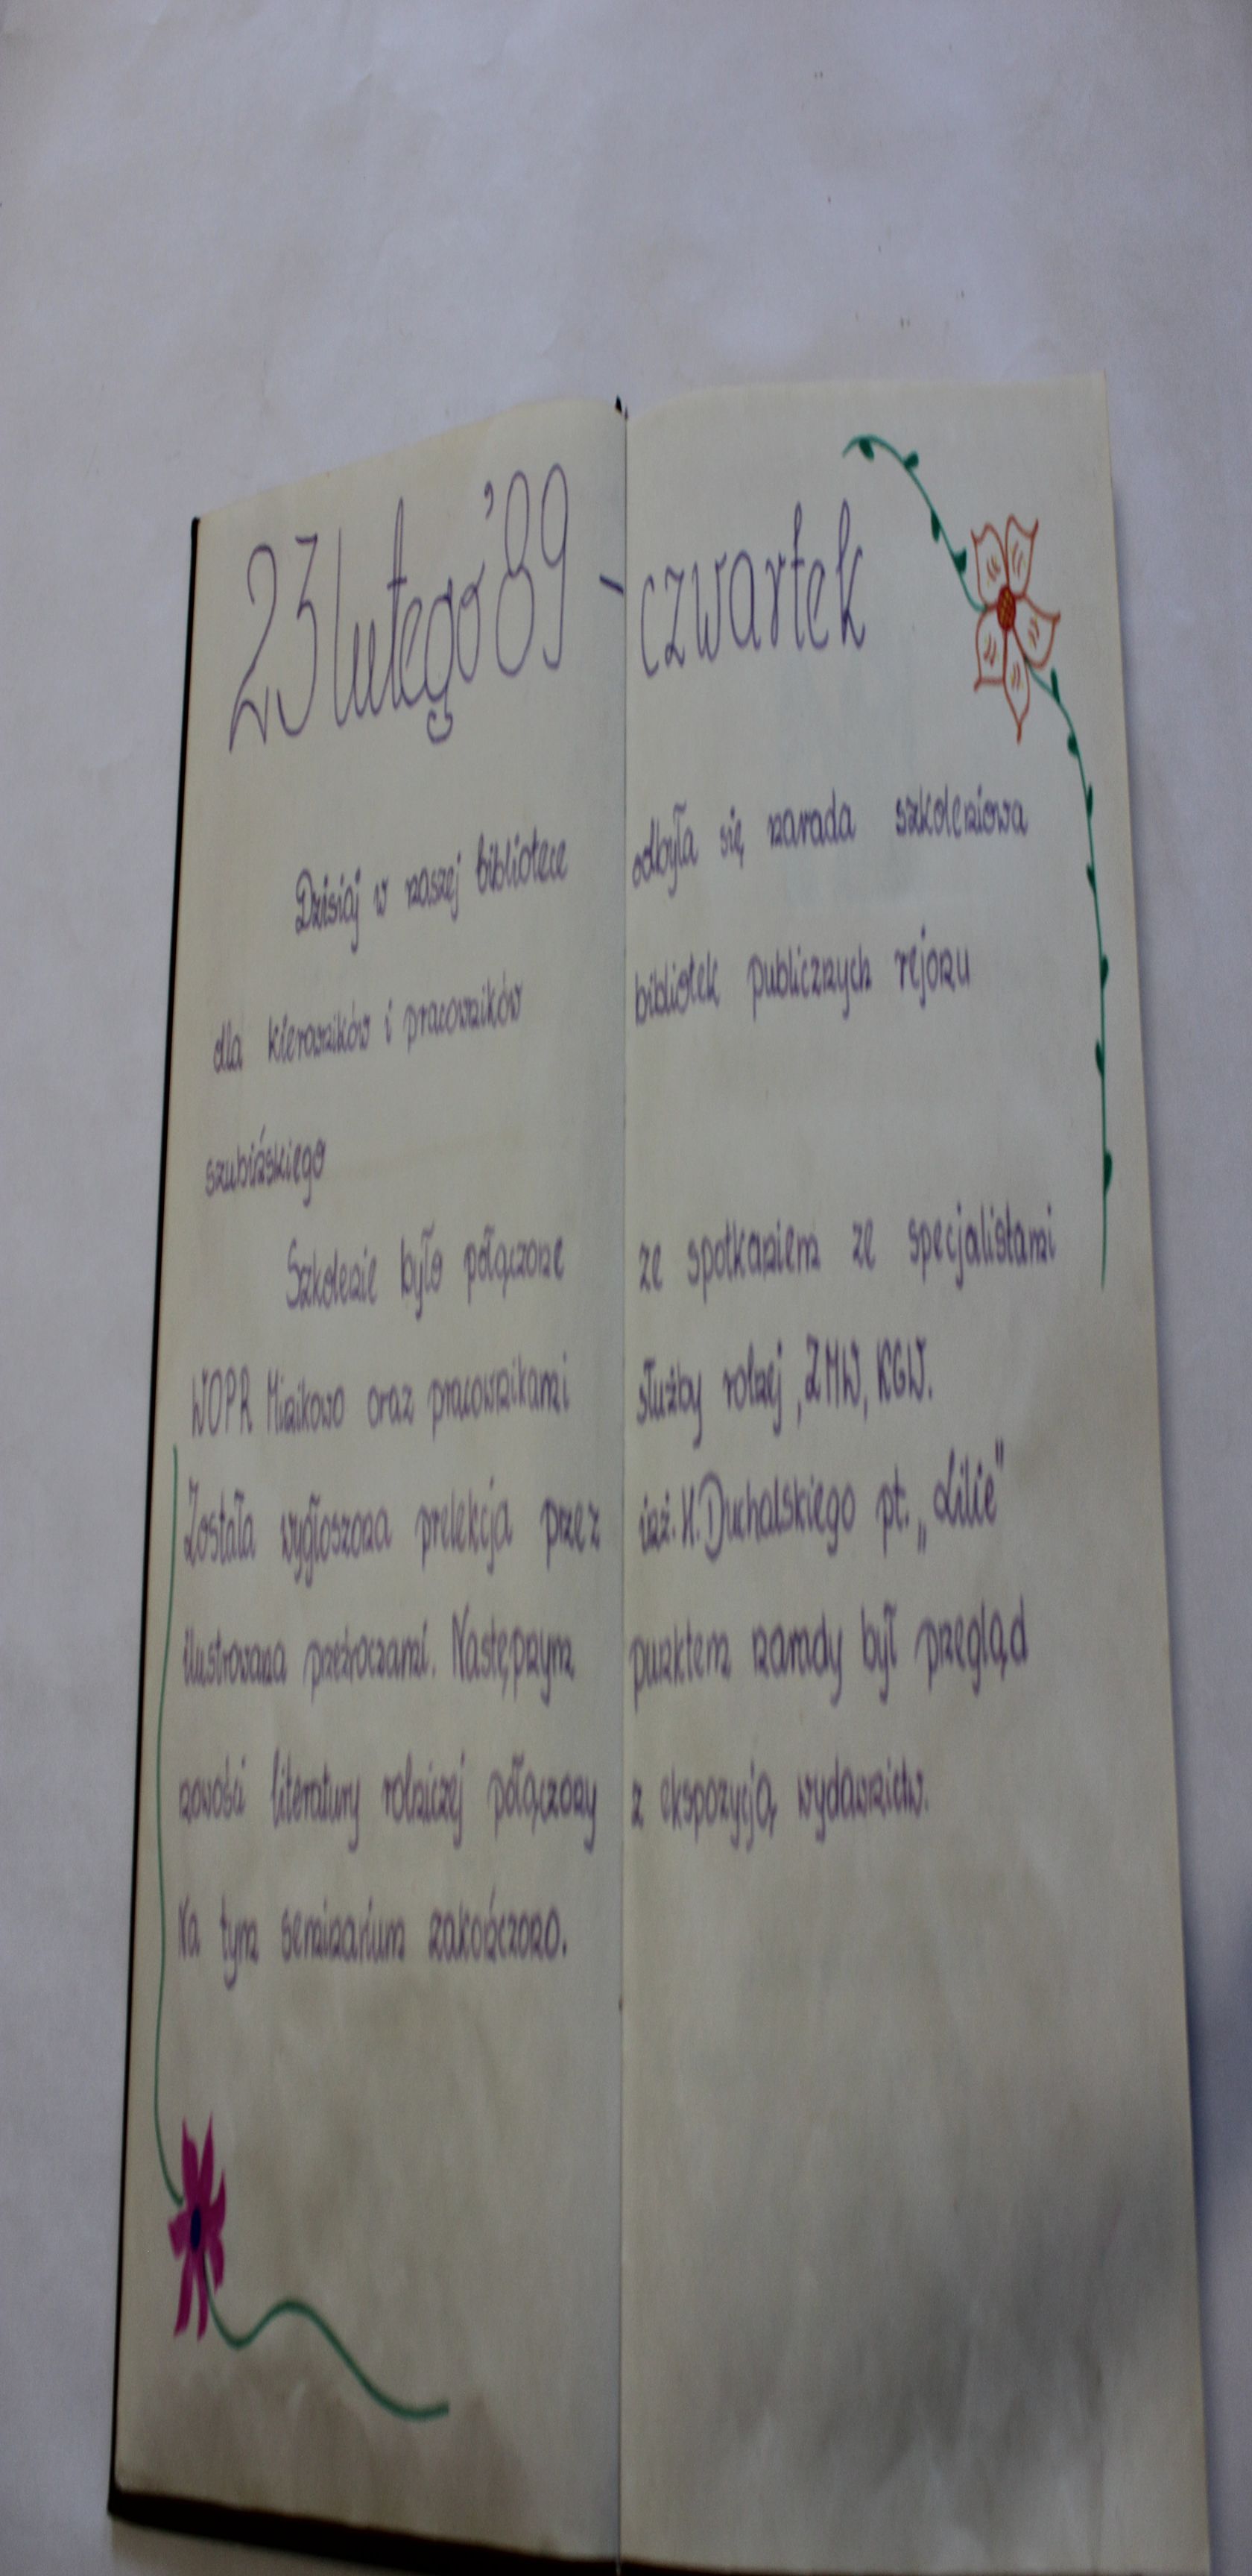 23 lutego '89 - czwartek
Dzisiaj w naszej bibliotece odbyła się narada szkoleniowa
dla kierowników i pracowników bibliotek publicznych rejonu
szubińskiego
Szkolenie było połączone ze spotkaniem ze specjalistami
WOPR Minikowo oraz pracownikami służby rolnej, ZMW, KGW.
Została wygłoszona prelekcja przez inż. K. Duchalskiego pt. „Lilie”
ilustrowana przeźroczami. Następnym punktem narady był przegląd
nowości literatury rolniczej połączony z ekspozycją wydawnictw.
Na tym seminarium zakończono.